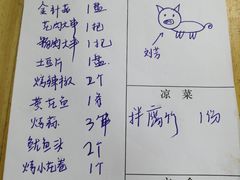 金针菇 1盘
龙肉大串 1把
鸡肉大串 1把
土豆片 1盘
烤辣椒 2个
黄花鱼 1条
烤蒜 3串
鱿鱼头 2个
烤小花卷 1个
刘芳
凉菜
拌腐竹 1份